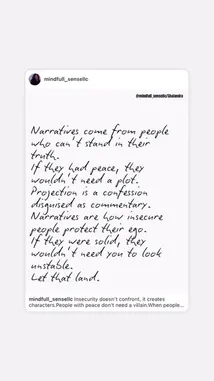 mindfull_sensellc
@mindfull_sensellc/Shalandra
Narratives come from people
who can't stand in their
truth.
If they had peace, they
wouldn't need a plot.
Projection is a confession
disguised as commentary.
Narratives are how insecure
people protect their ego.
If they were solid, they
wouldn't need you to look
unstable.
Let that land.
mindfull_sensellc Insecurity doesn't confront, it creates
characters.People with peace don't need a villain.When people...